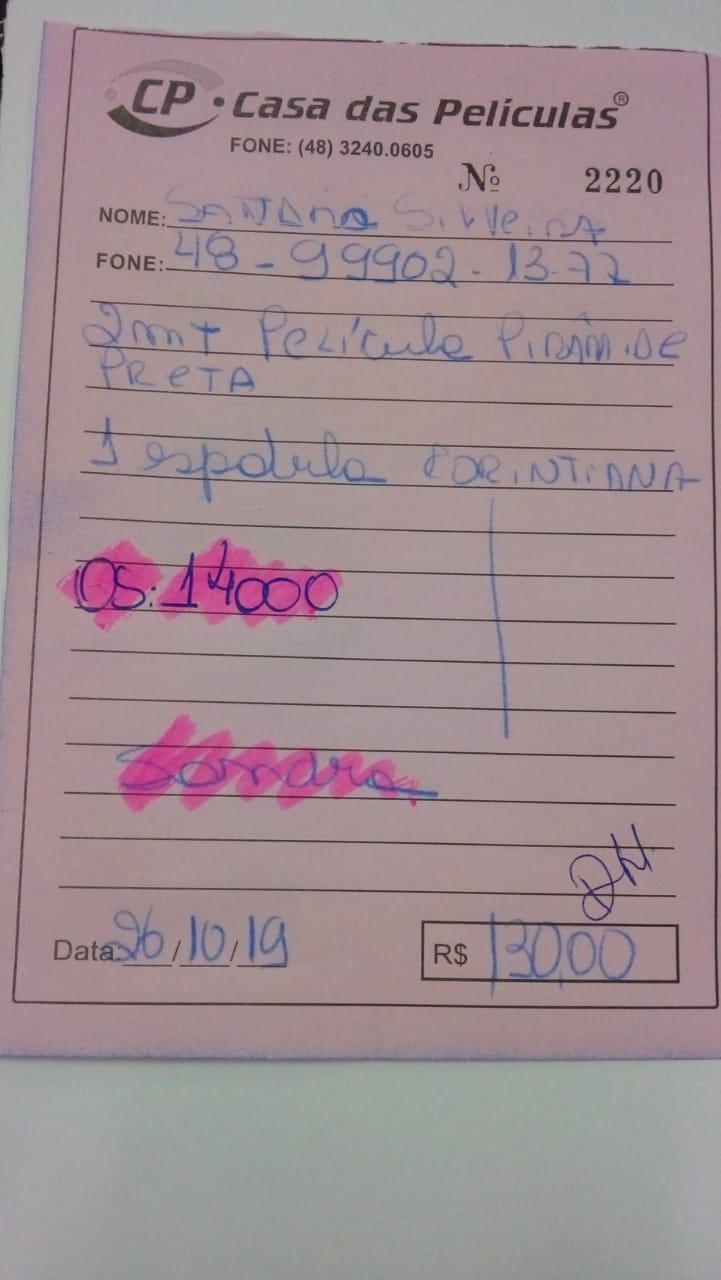 CP • Casa das Películas®
FONE: (48) 3240.0605
Nº 2220
NOME: SANTANA Silveira
FONE: 48-99902-13-77
2mt Película PIRÂMIDE
PRETA
1 espátula CORINTIANA
OS: 14000
Sandra
Data: 26/10/19
R$ 130,00